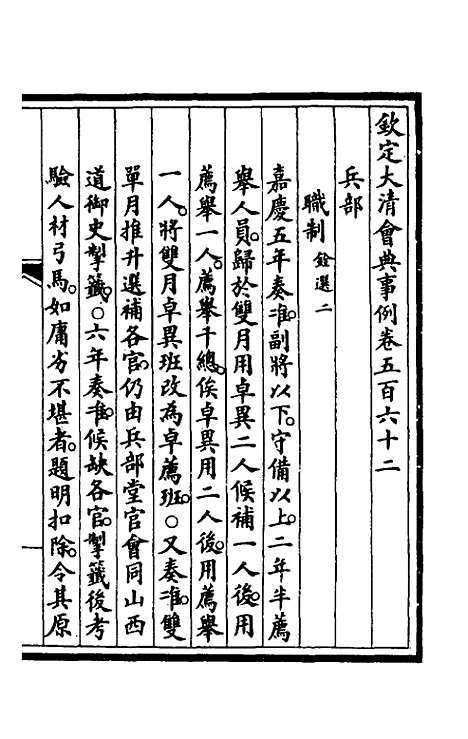 欽定大清會典事例卷五百六十二
兵部
職制 銓選二
嘉慶五年奏准。副將以下。守備以上。二年半薦
舉人員。歸於雙月用卓異二人候補一人後。用
薦舉一人。薦舉千總。俟卓異用二人後。用薦舉
一人。將雙月卓異班改為卓薦班。○又奏准。雙
單月推升選補各官。仍由兵部堂官會同山西
道御史掣籤。○六年奏准。候缺各官。掣籤後考
驗人材弓馬。如庸劣不堪者。題明扣除。令其原